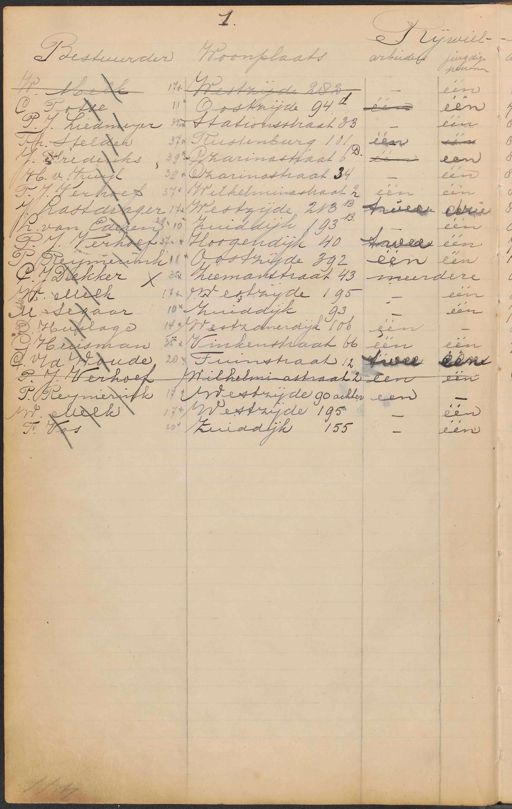 1.
Rijwiel-
Bestuurder Woonplaats arbeider
W. Melk 17 Westzijde 282 - één
C. Totte 11 Oostzijde 94 d één één
P.J. Liedmeyer Stationsstraat 33 - één
Th. Stelder 37 Rustenburg 101 één één
Frederiks 29 Czarinastraat 6 B één
H. v. 38 Czarinastraat 34 - één
P.J. Verhoef 37 Wilhelminastraat 2 één één
Kastdrager 17 Westzijde 213 B twee drie
K. van 10 Zuiddijk 93 B - één
P.J. Verhoef Hoogendijk 40 twee één
P. Reijmerink 11 Oostzijde 392 één één
C. Dekker x Zeemanstraat 43 meerdere
W. Melk 17 Westzijde 195 - één
M. Segaar 10 Zuiddijk 93 - één
Hublage 14 Westzanerdijk 106 één -
Huisman Vinkenstraat 66 één één
v/d Woude 20 Tuinstraat 12 twee één
P.J. Verhoef Wilhelminastraat 2 één één
P. Reymerink 17 Westzijde 90 achter één -
W. Melk 17 Westzijde 195 - één
F. Vos Zuiddijk 155 - één